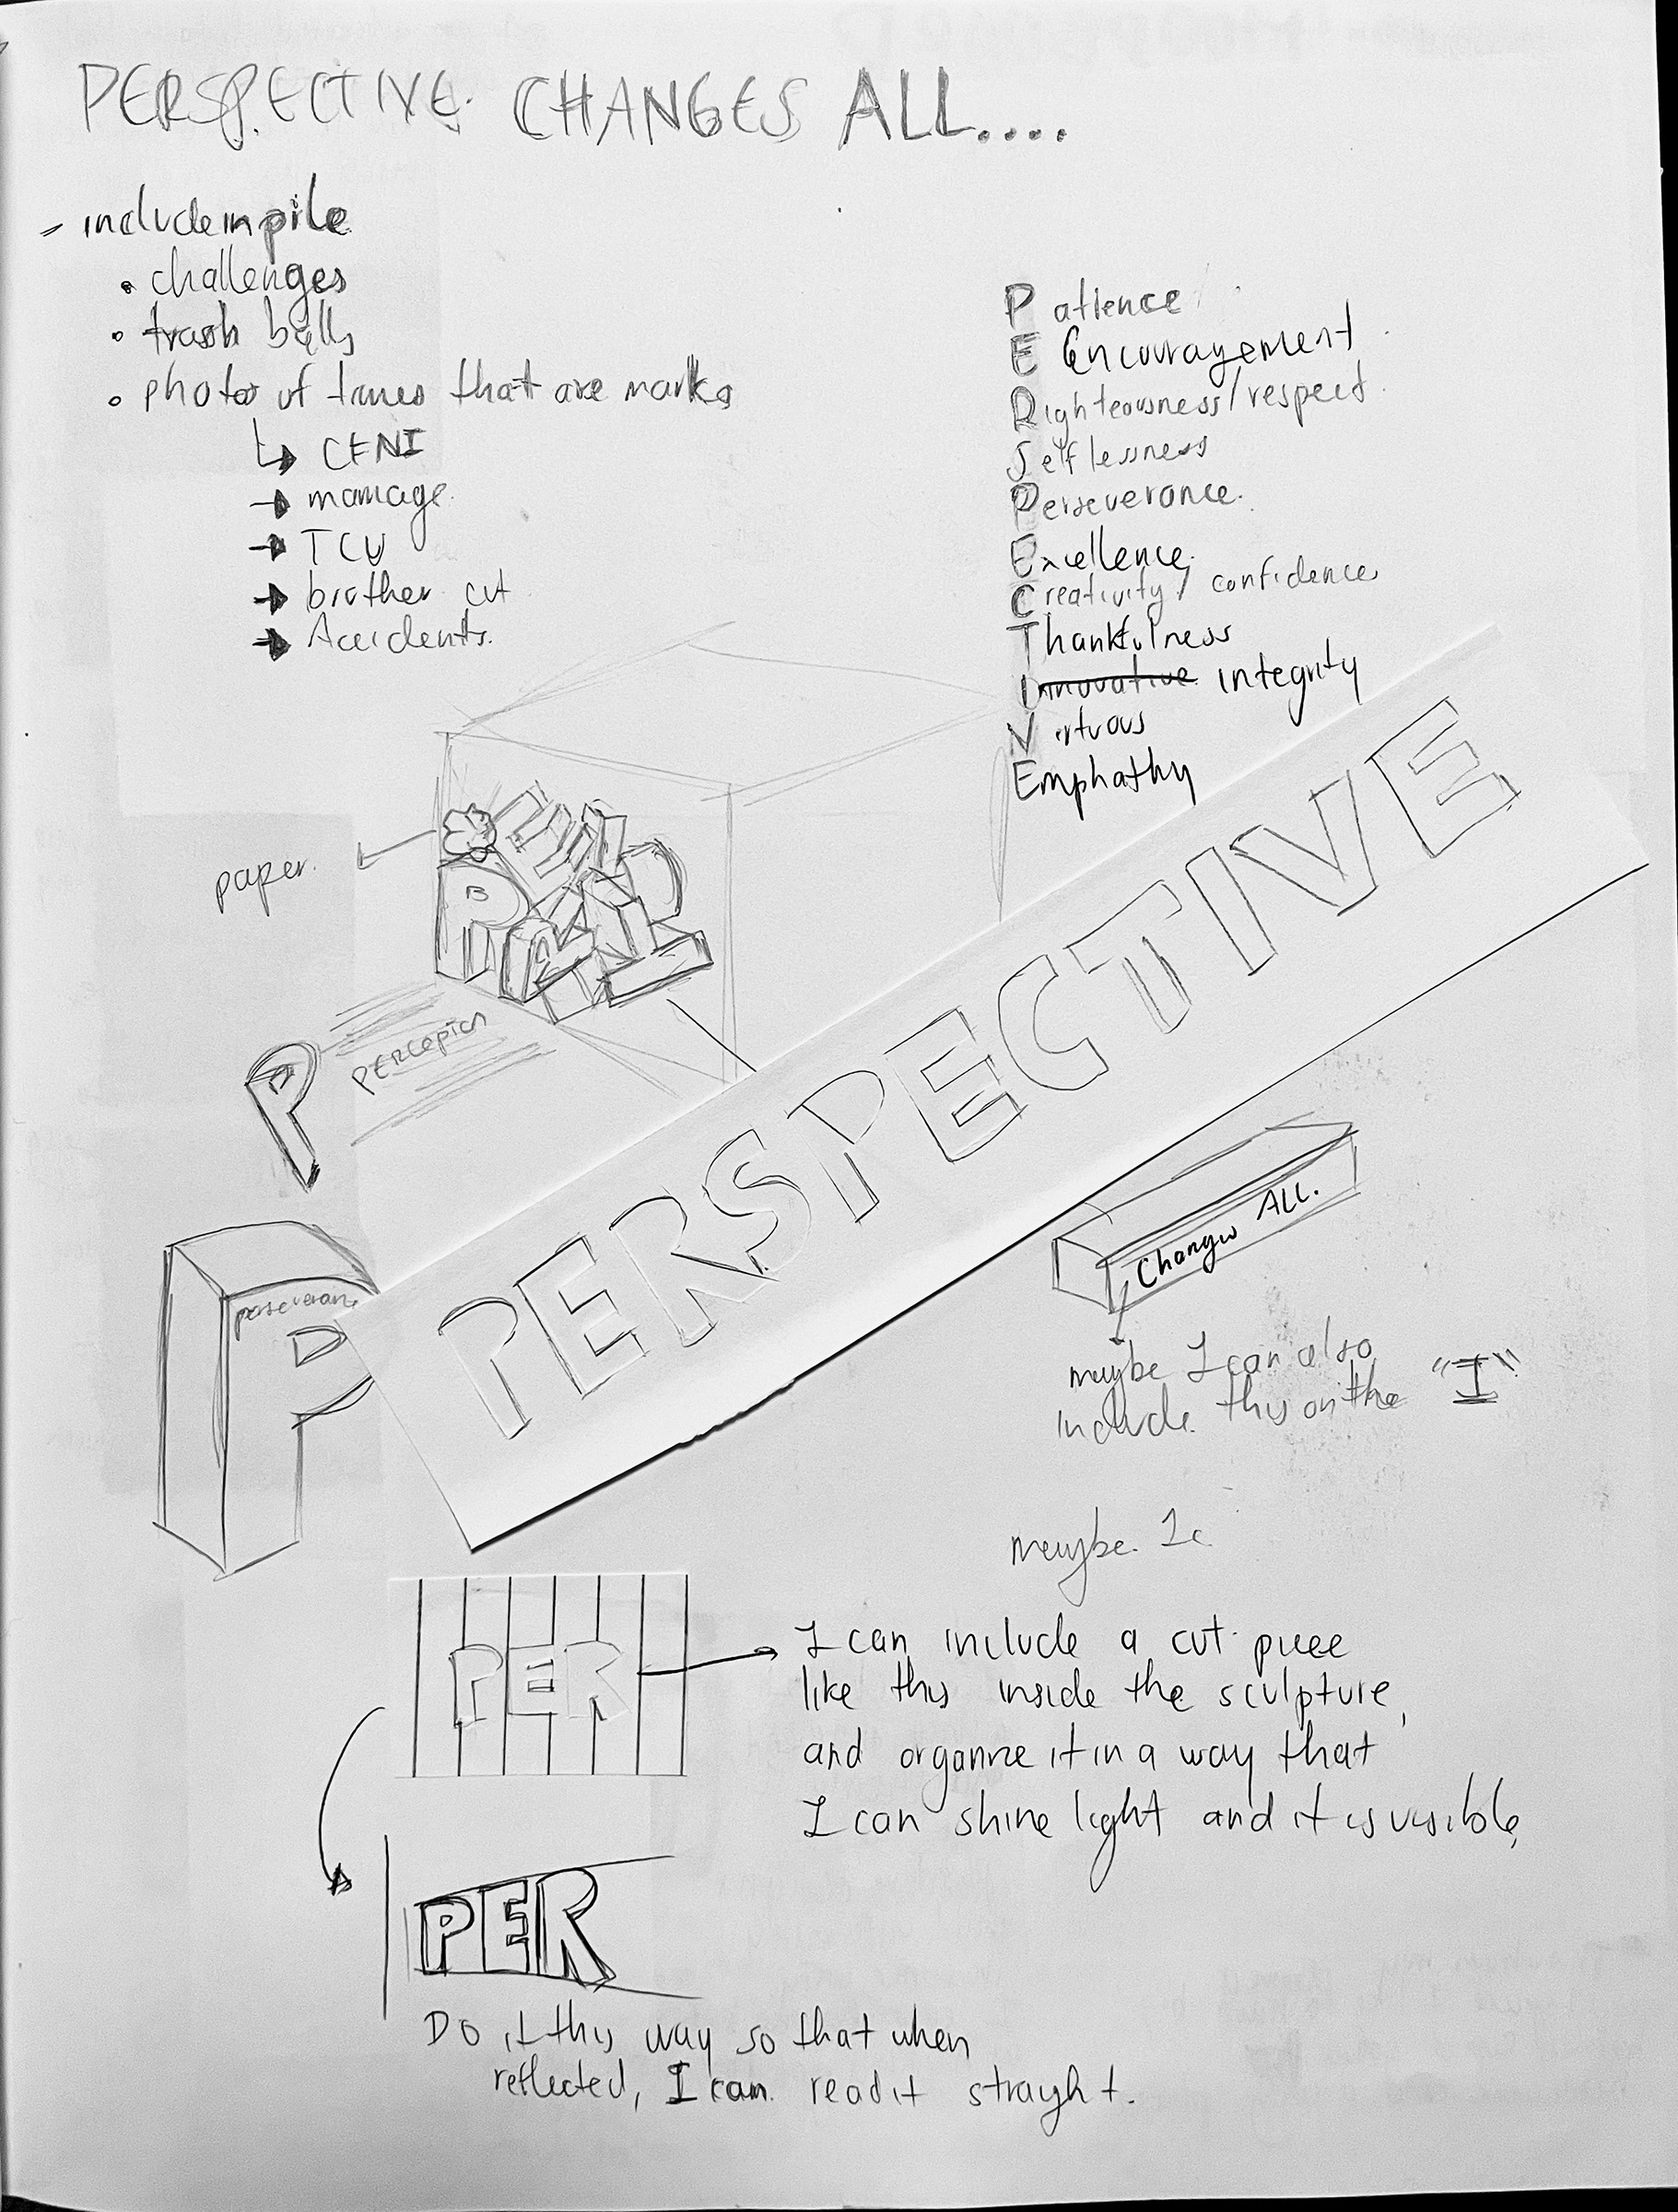 PERSPECTIVE CHANGES ALL....
- include in pile
• challenges
• trash balls
• photos of times that are marks
↳ CENI
→ marriage.
→ TCU
→ brother cut
→ Accidents.
Patience
E Encouragement
Righteousness/respect
Selflessness
Perseverance.
Excellence
Creativity / confidence
Thankfulness
Innovative integrity
Virtuous
Emphathy
paper.
P
PERCEPTION
PERSPECTIVE
P
Changes ALL.
maybe I can also
include this on the "I"
maybe. I c
PER
I can include a cut piece
like this inside the sculpture,
and organize it in a way that
I can shine light and it is visible,
PER
Do it this way so that when
reflected, I can read it strayht.